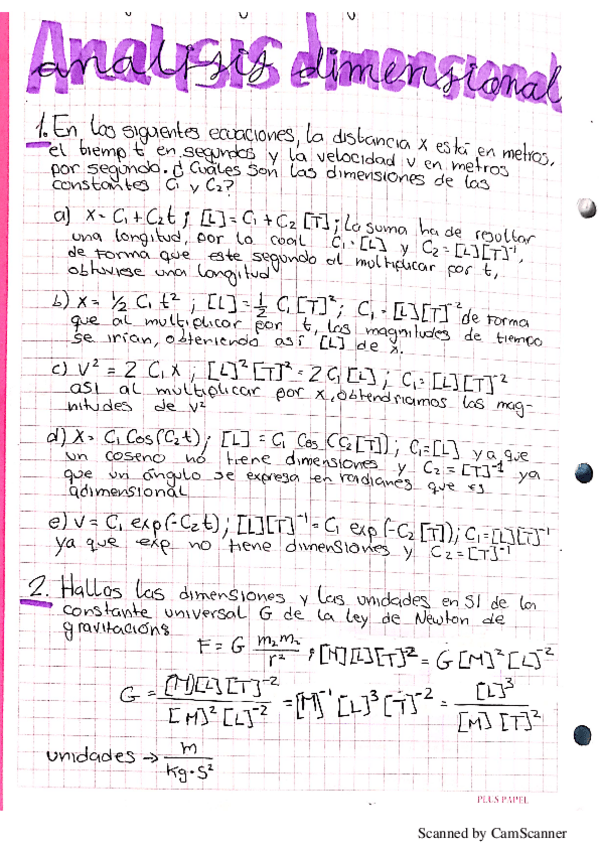 Analisis dimensional
1. En las siguientes ecuaciones, la distancia x está en metros,
el tiempo t en segundos y la velocidad v en metros
por segundo. ¿Cuáles son las dimensiones de las
constantes C₁ y C₂?
a) x = C₁ + C₂t ; [L] = C₁ + C₂ [T] ; La suma ha de resultar
una longitud, por lo cual C₁ = [L] y C₂ = [L][T]⁻¹,
de forma que este segundo al multiplicar por t,
obtuviese una longitud
b) x = ½ C₁ t² ; [L] = ½ C₁ [T]² ; C₁ = [L][T]⁻² de forma
que al multiplicar por t, las magnitudes de tiempo
se irian, obteniendo así [L] de x.
c) v² = 2 C₁ x ; [L]² [T]² = 2 C₁ [L] ; C₁ = [L][T]⁻²
asi al multiplicar por x, obtendriamos las mag-
nitudes de v²
d) x = C₁ Cos(C₂t) ; [L] = C₁ Cos (C₂[T]) ; C₁ = [L] ya que
un coseno no tiene dimensiones y C₂ = [T]⁻¹ ya
que un ángulo se expresa en radianes que es
adimensional
e) v = C₁ exp(-C₂t) ; [L][T]⁻¹ = C₁ exp(-C₂ [T]) ; C₁ = [L][T]⁻¹
ya que exp no tiene dimensiones y C₂ = [T]⁻¹
2. Hallos las dimensiones y las unidades en SI de la
constante universal G de la ley de Newton de
gravitación
F = G m₂m₂/r² ; [M][L][T]² = G [M]² [L]⁻²
G = [M][L][T]⁻² / [M]² [L]⁻² = [M]⁻¹ [L]³ [T]⁻² = [L]³ / [M] [T]²
unidades → m / kg · s²
PLUS PAPEL
Scanned by CamScanner